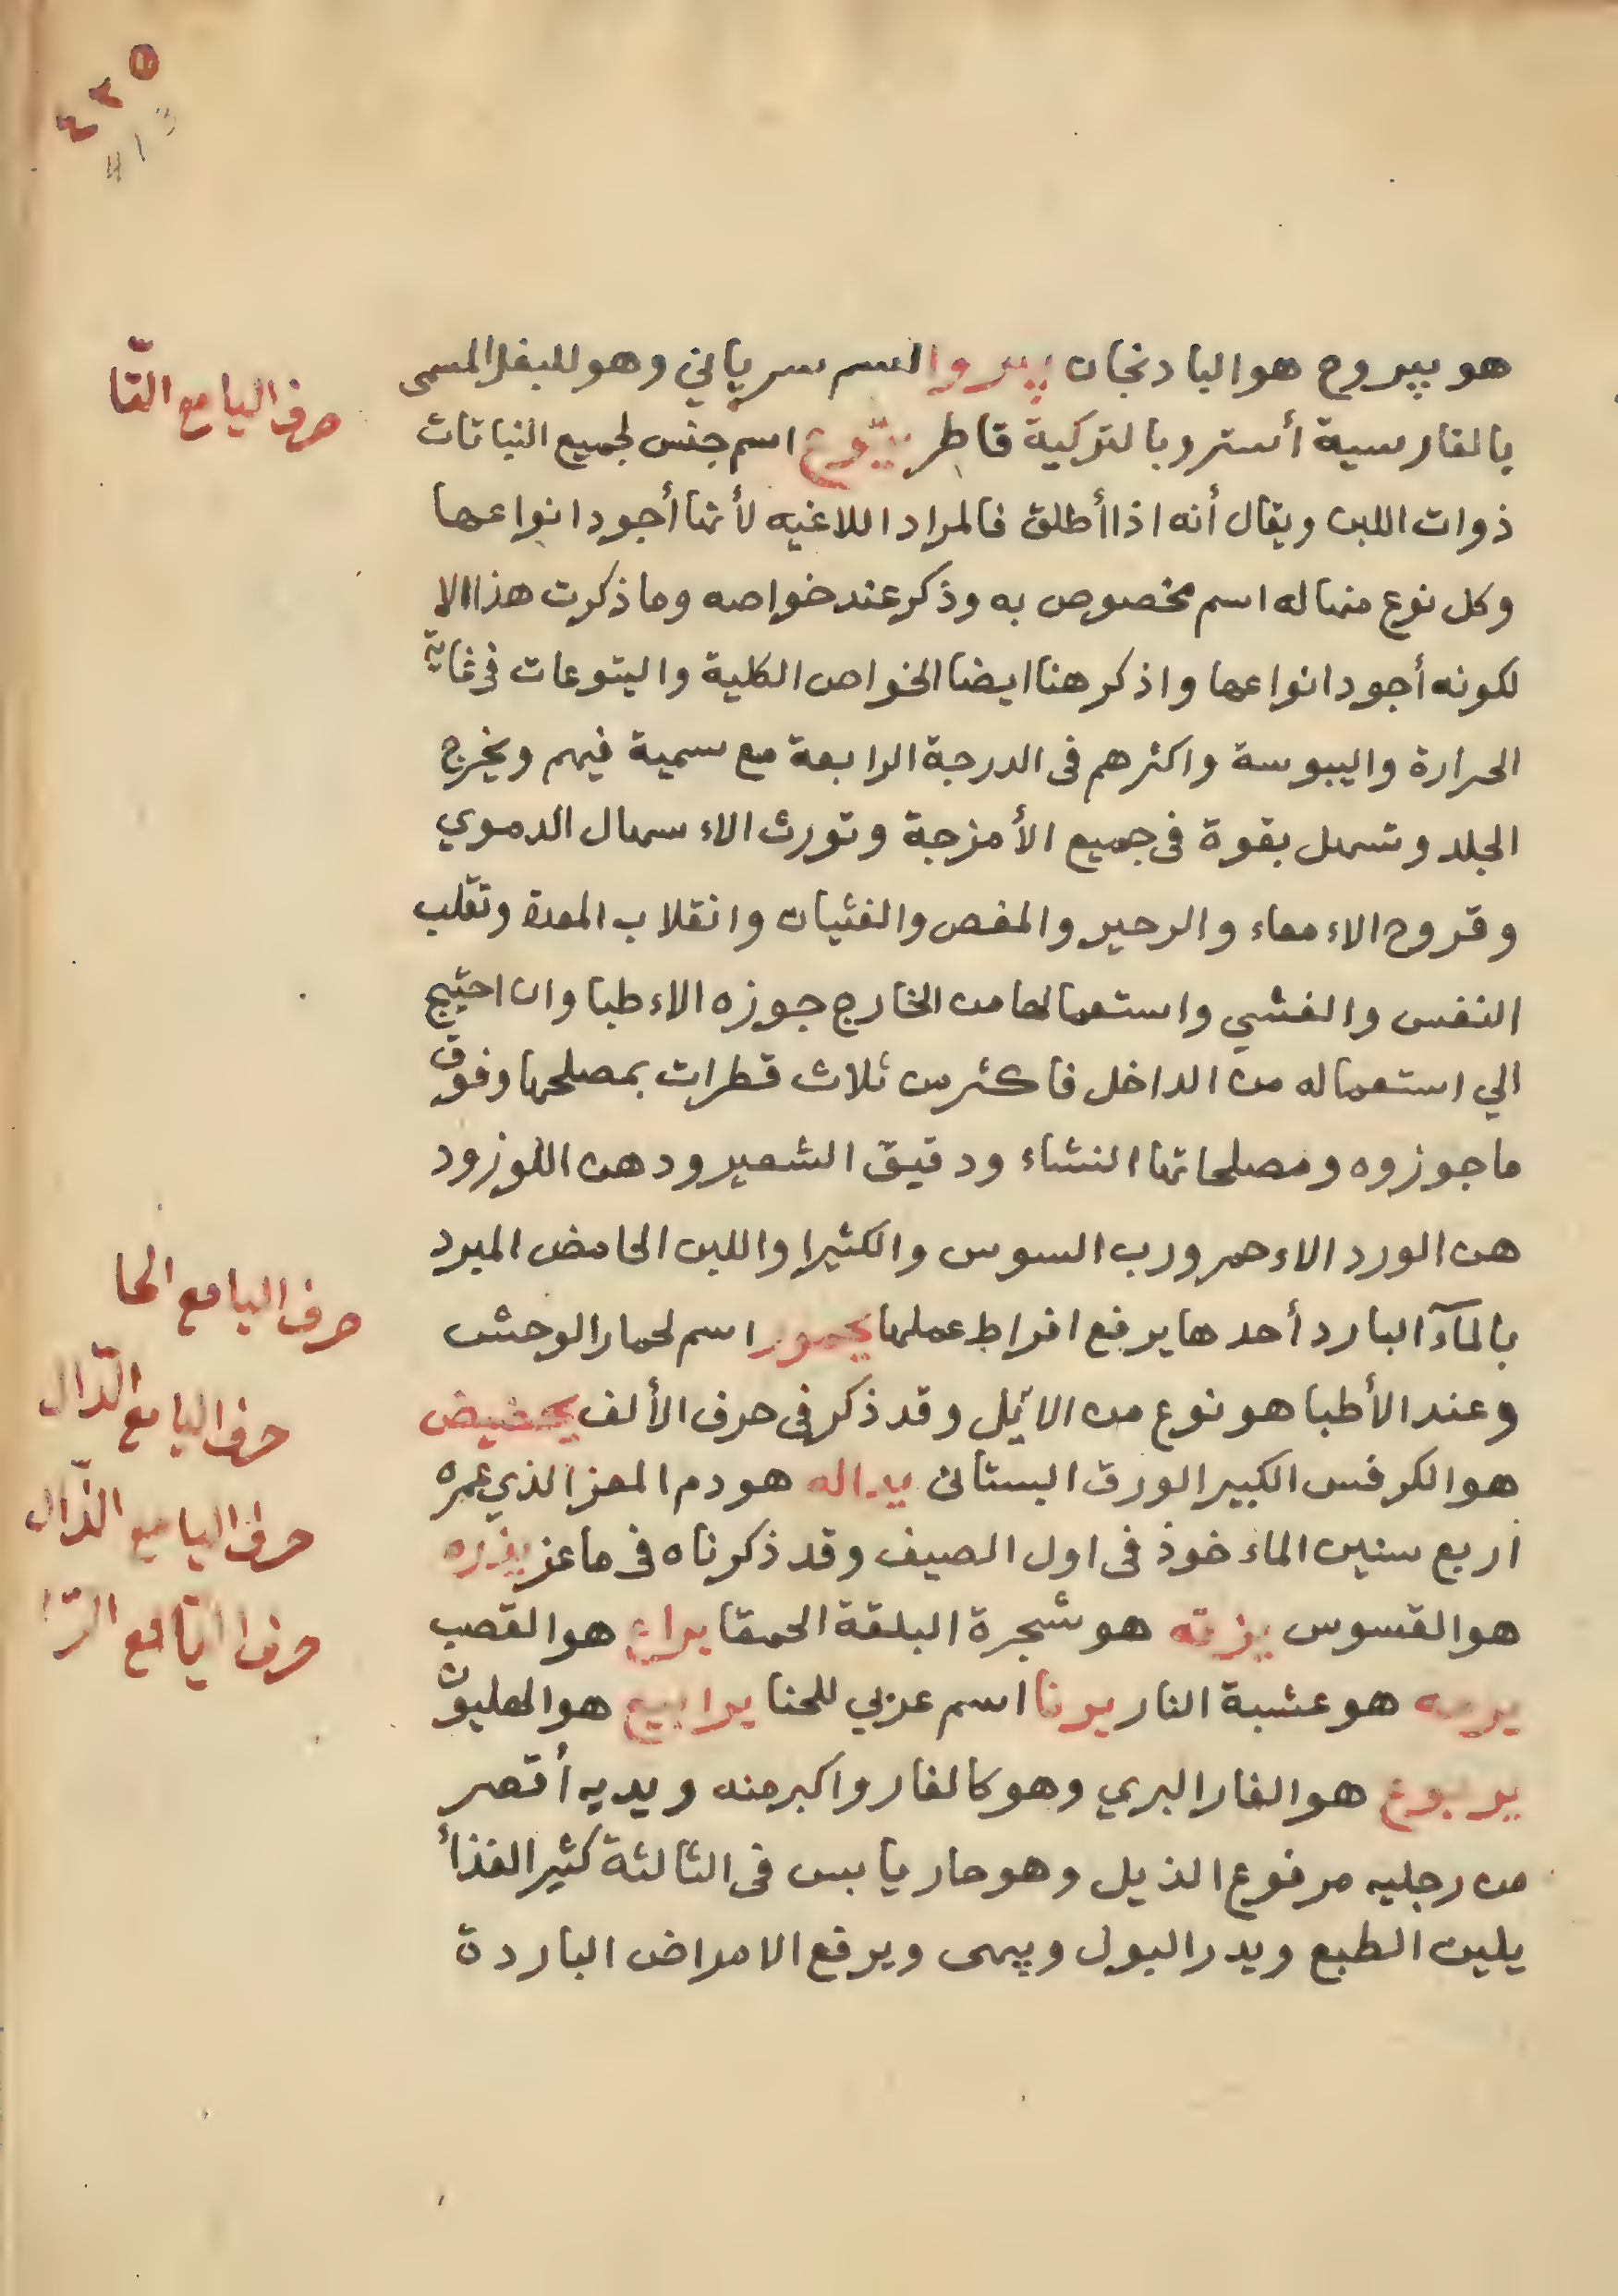 ٤٢٥
413
هو يبروح هو البادنجان يبروا السم سرياني وهو للبغل المسمى
حرف اليا مع التا
بالفارسية أستر وبالتركية قاطر يتّوع اسم جنس لجميع النباتات
ذوات اللبن ويقال أنه اذا أطلق فالمراد اللاغيه لأنها أجود انواعها
وكل نوع منها له اسم مخصوص به وذكر عند خواصه وما ذكرت هذا الا
لكونه أجود انواعها واذكر هنا ايضا الخواص الكلية واليتوعات في غاية
الحرارة واليبوسة واكثرهم في الدرجة الرابعة مع سمية فيهم ويخرج
الجلد وتسهل بقوة في جميع الأمزجة وتورث الاءسهال الدموي
وقروح الاءمعاء والزحير والمغص والغثيان وانقلاب المعدة وتقلب
النفس والغشي واستعمالها من الخارج جوزه الاءطبا وان احتيج
الي استعماله من الداخل فاكثر من ثلاث قطرات بمصلحها وفوق
ما جوزوه ومصلحاتها النشاء ودقيق الشعير ودهن اللوز ود
هن الورد الاءحمر ورب السوس والكثيرا واللبن الحامض المبرد
حرف اليا مع الحا
بالمآء البارد أحدها يرفع افراط عملها يحمور اسم لحمار الوحش
حرف اليا مع الدّال
وعند الأطبا هو نوع من الايّل وقد ذكر في حرف الألف يحضيض
هو الكرفس الكبير الورق البستاني يداله هو دم المعز الذي عمره
حرف اليا مع الذّال
اربع سنين الماءخوذ في اول الصيف وقد ذكرناه في ماعز يذره
حرف اليّا مع الرّا
هو القسوس يزته هو شجرة البلقة الحمقا يراع هو القصب
هو عشبة النار يرنا اسم عربي للحنا يرابيع هو الهليون
يربوع هو الفار البري وهو كالفار واكبر منه ويديه أقصر
من رجليه مرفوع الذيل وهو حار يابس في الثالثة كثير الغذأ
يلين الطبع ويدر البول ويبهى ويرفع الامراض الباردة